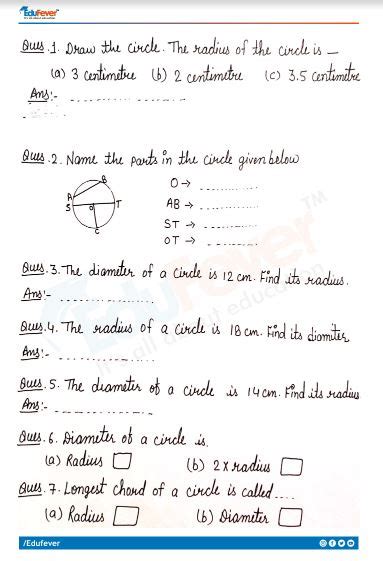 EduFever
It's all about education
Ques.1. Draw the circle. The radius of the circle is –
(a) 3 centimetre (b) 2 centimetre (c) 3.5 centimetre
Ans:-
Ques.2. Name the parts in the circle given below
O →
AB →
ST →
OT →
B
A
S O T
C
Ques.3. The diameter of a circle is 12 cm. Find its radius.
Ans:-
Ques.4. The radius of a circle is 18 cm. Find its diomiter
Ans:-
Ques.5. The diameter of a circle is 14 cm. Find its radius
Ans:-
Ques.6. Diameter of a circle is.
(a) Radius (b) 2 x radius
Ques.7. Longest chord of a circle is called....
(a) Radius (b) Diameter
/Edufever
EduFever™
It's all about education